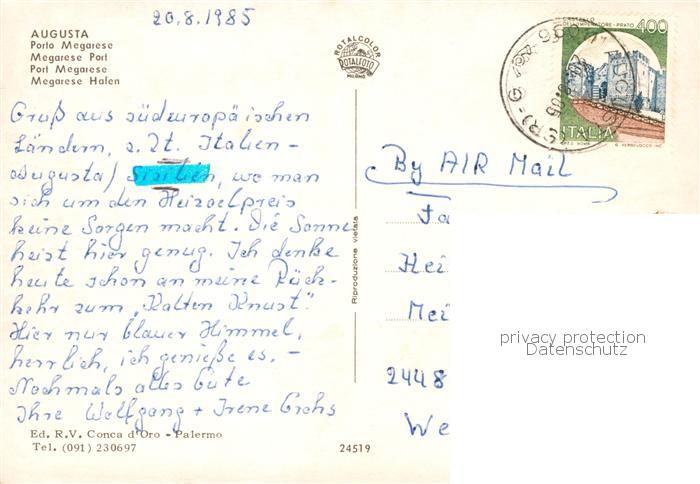 20.8.1985
AUGUSTA
Porto Megarese
Megarese Port
Port Megarese
Megarese Hafen
Gruß aus südeuropäischen
Ländern, z. Zt. Italien -
Augusta/Sizilien, wo man
sich um den Heizoelpreis
keine Sorgen macht. Die Sonne
heizt hier genug. Ich denke
heute schon an meine Rück-
kehr zum "Kalten Knust".
Hier nur blauer Himmel,
herrlich, ich genieße es. -
Nochmals alles Gute
Ihre Wolfgang + Irene
Ed. R.V. Conca d'Oro - Palermo
Tel. (091) 230697
24519
ROTALCOLOR
ROTALFOTO
MILANO
Riproduzione vietata
CASTELLO
DELL'IMPERATORE - PRATO
400
ITALIA
By AIR Mail
Fa
Hei
Mei
2448
We
privacy protection
Datenschutz